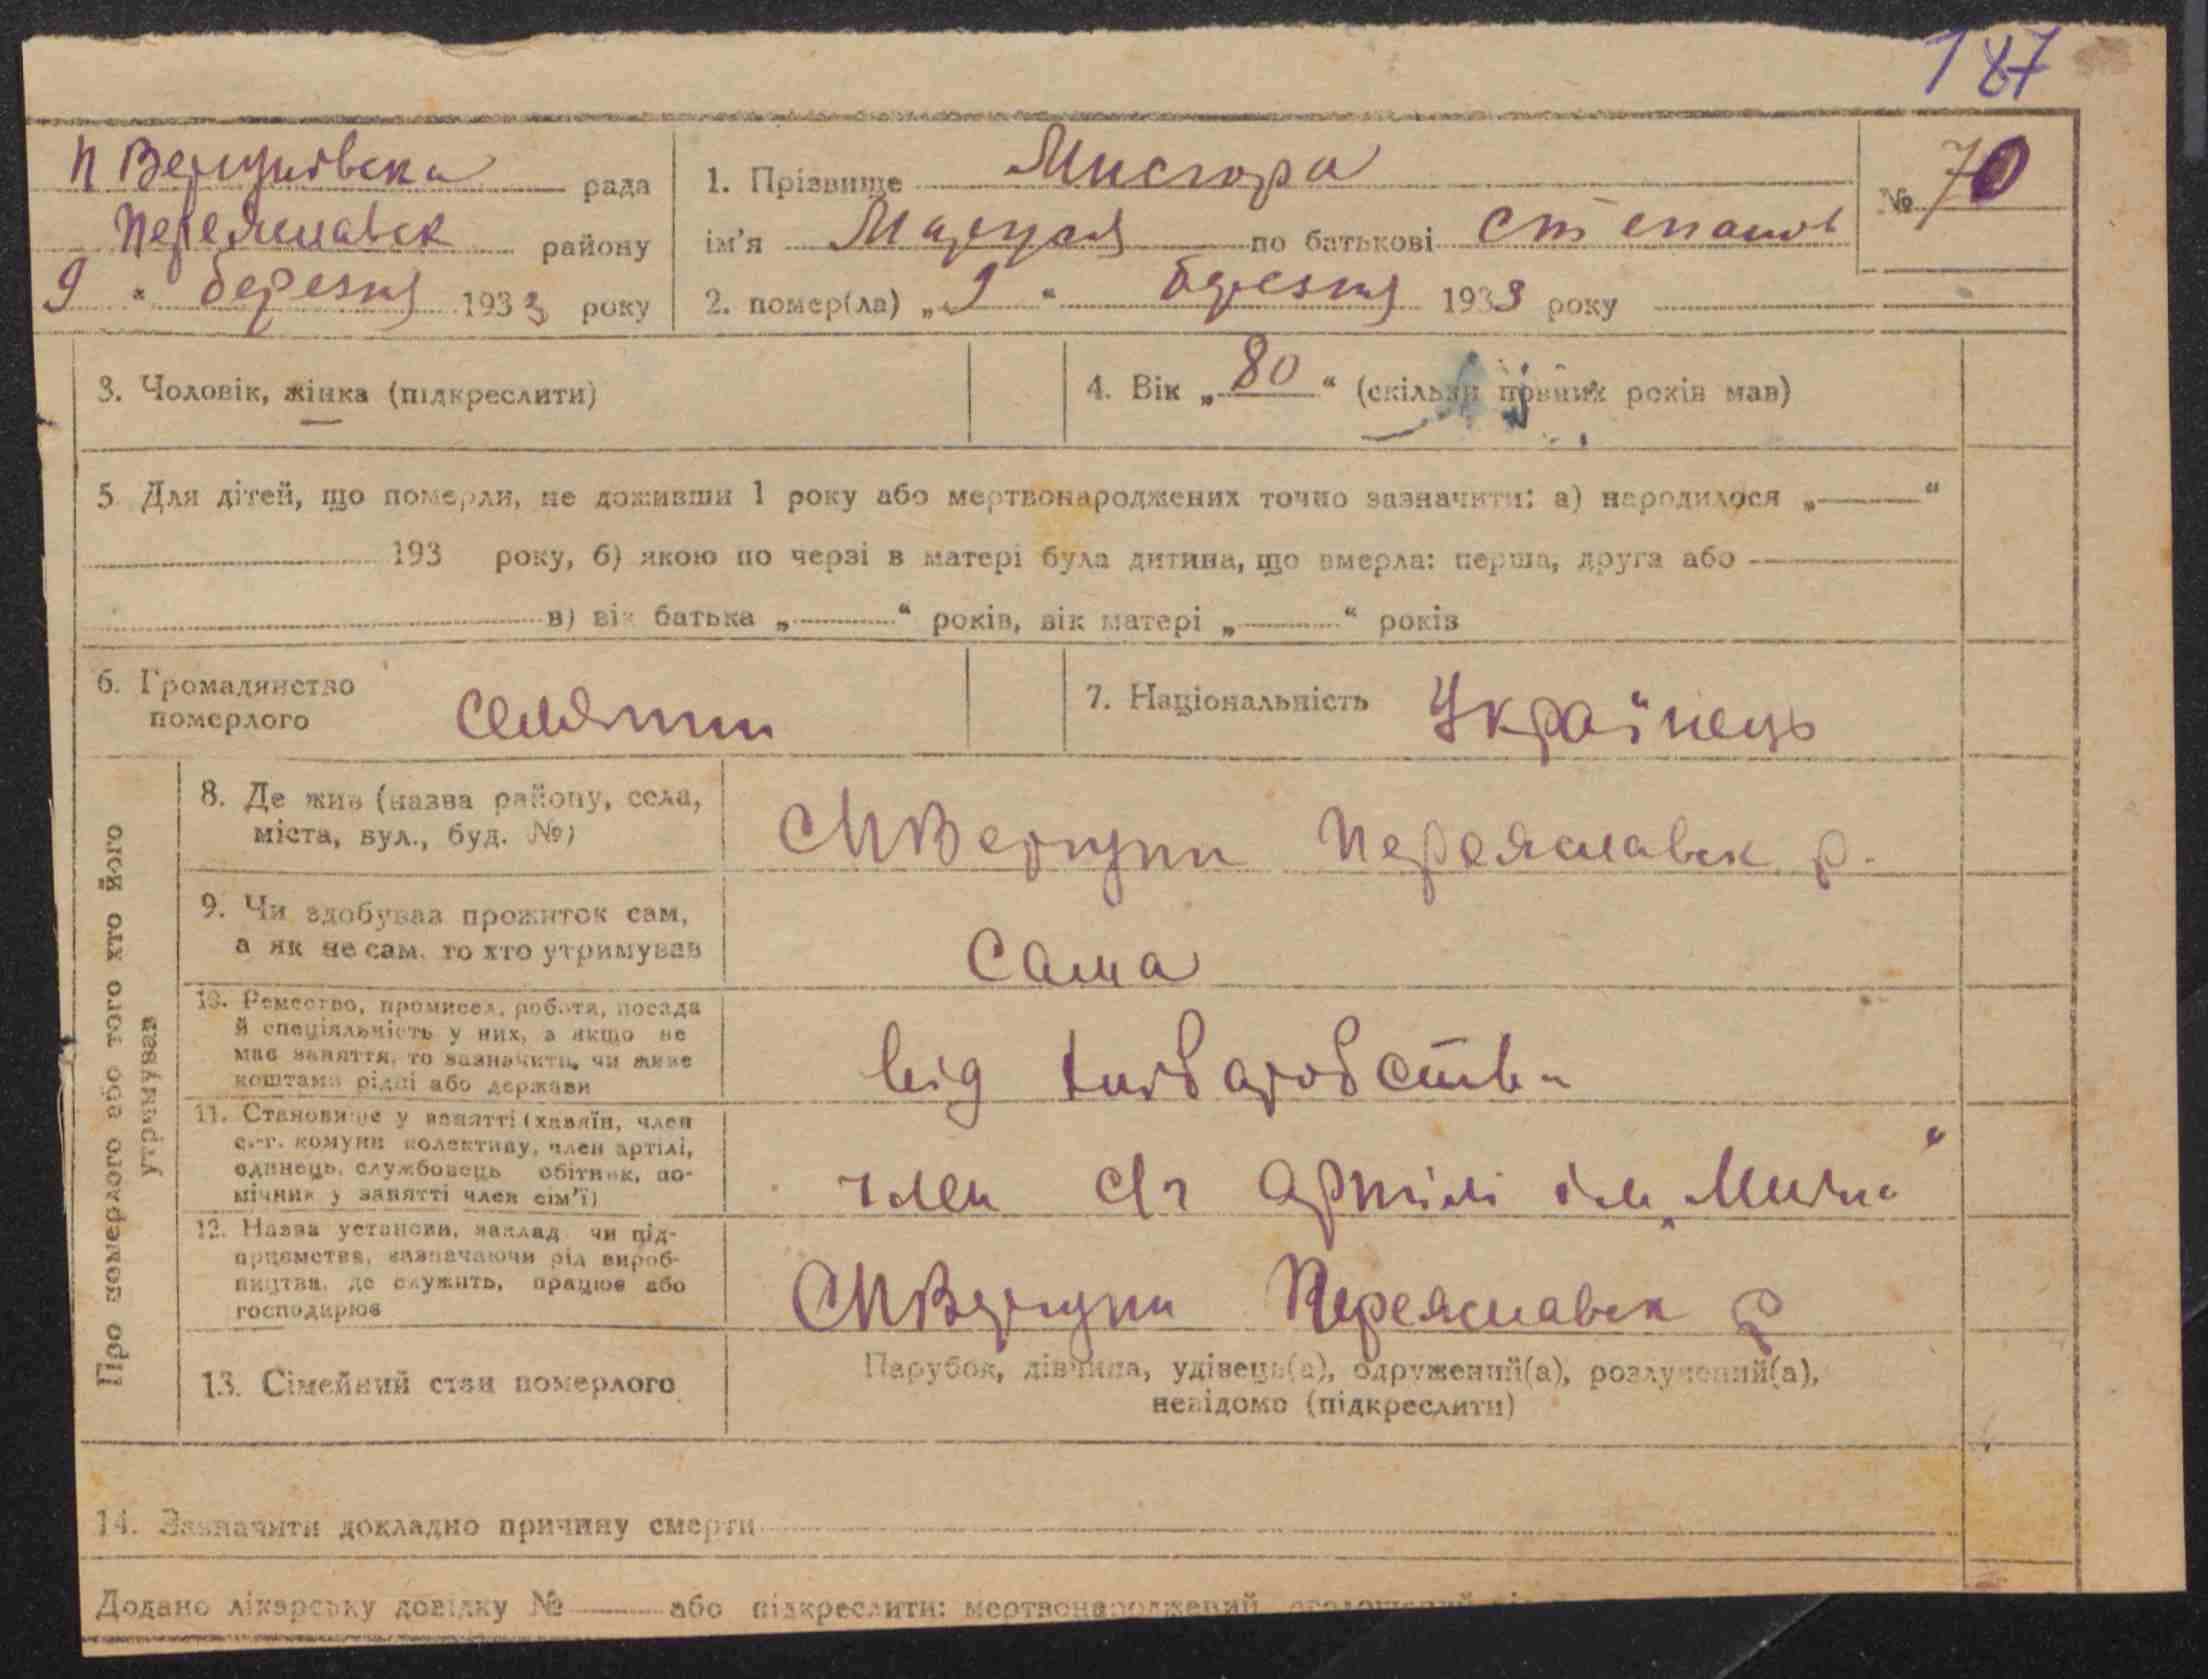 187
П Вергунівська рада
Переяславськ району
9 " березня 1933 року
1. Прізвище Мисюра
№ 70
ім'я Марушя по батькові Степанов
2. помер(ла) „ 9 " березня 1933 року
3. Чоловік, жінка (підкреслити)
4. Вік „ 80 " (скільки повних років мав)
5. Для дітей, що померли, не доживши 1 року або мертвонароджених точно зазначити: а) народилося „ "
193 року, б) якою по черзі в матері була дитина, що вмерла: перша, друга або
в) вік батька „ " років, вік матері „ " років
6. Громадянство
померлого селянин
7. Національність Українець
Про померлого або того хто його
утримував
8. Де жив (назва району, села,
міста, вул., буд. №)
СПВергуни Переяславск р.
9. Чи здобував прожиток сам,
а як не сам, то хто утримував
Сама
10. Ремество, промисел, робота, посада
й спеціяльність у них, а якщо не
має заняття, то зазначити, чи живе
коштами рідні або держави
від хліборобства
11. Становище у занятті (хазяїн, член
с.-г. комуни колективу, член артілі,
одинець, службовець обітник, по-
мічник у занятті член сім'ї)
член с/г артілі ім.
12. Назва установи, заклад чи під-
приємства, зазначаючи рід вироб-
ництва, де служить, працює або
господарює
СПВергуни Переяславск р
13. Сімейний стан померлого
Парубок, дівчина, удівець(а), одружений(а), розлучений(а),
невідомо (підкреслити)
14. Зазначити докладно причину смерти
Додано лікарську довідку № або підкреслити: мертвонароджений,